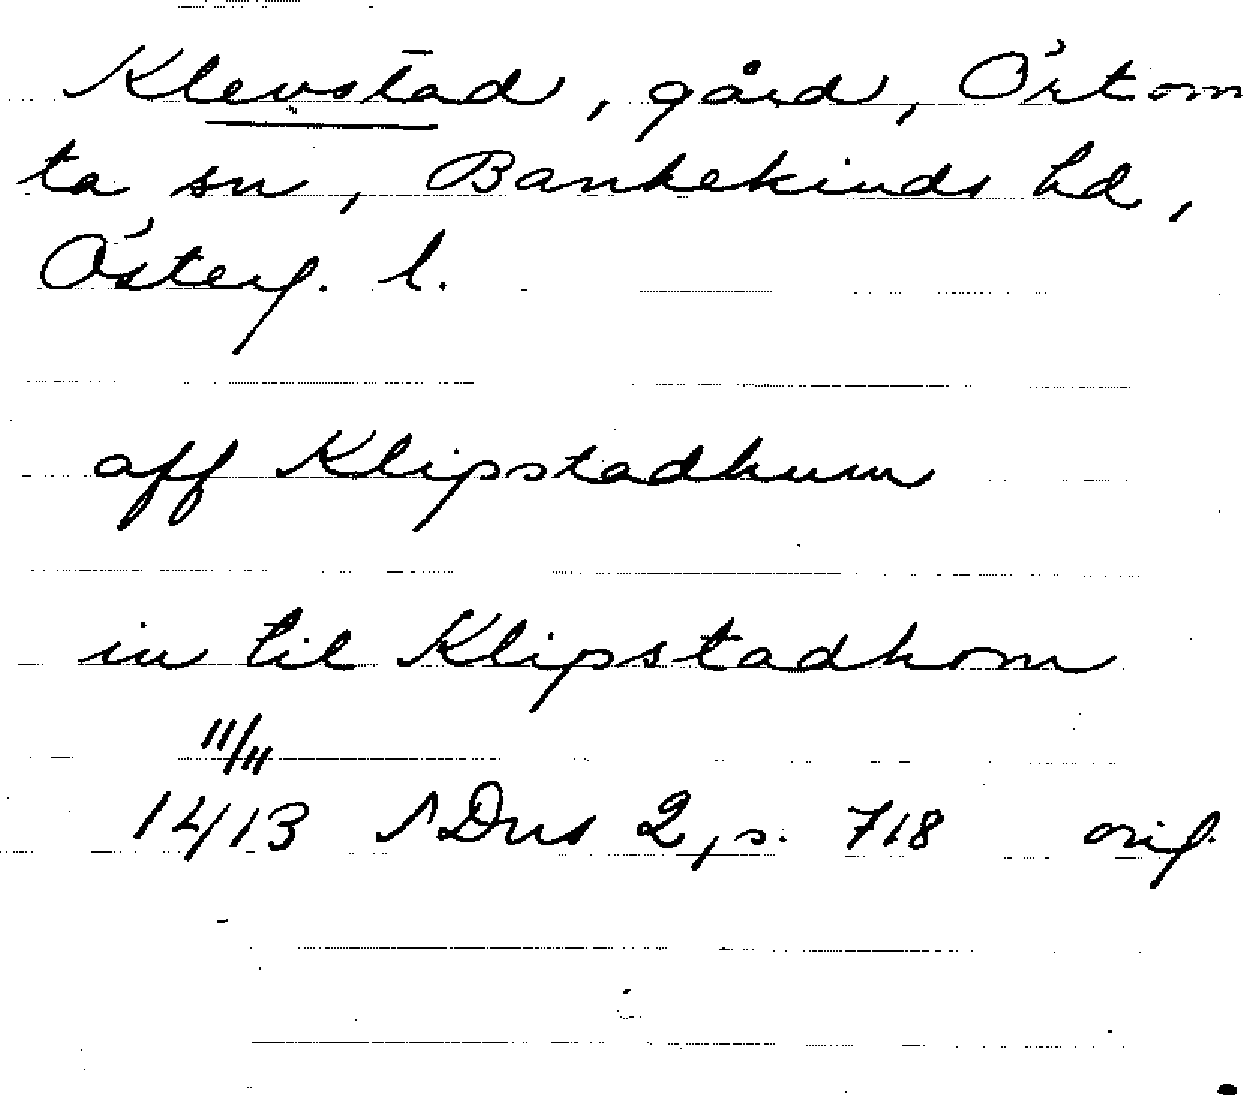 Klevstad, gård, Örtom
ta sn, Bankekinds hd,
Österg. l.
aff Klipstadhum
in til Klipstadhom
11/11
1413 SDns 2, s. 718 orig.